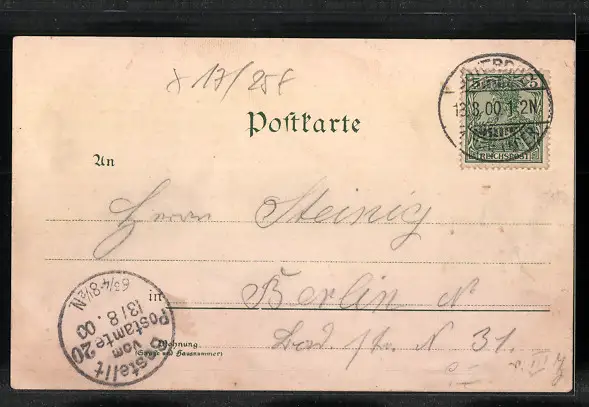 x 17/25 f
5
13.8.00.1-2N
REICHSPOST
Postkarte
An
Herrn Steinig
in Berlin N
Wohnung
(Straße und Hausnummer)
N 31.
Bestellt
vom
Postamte 20
13/8.00
6¾-8½N